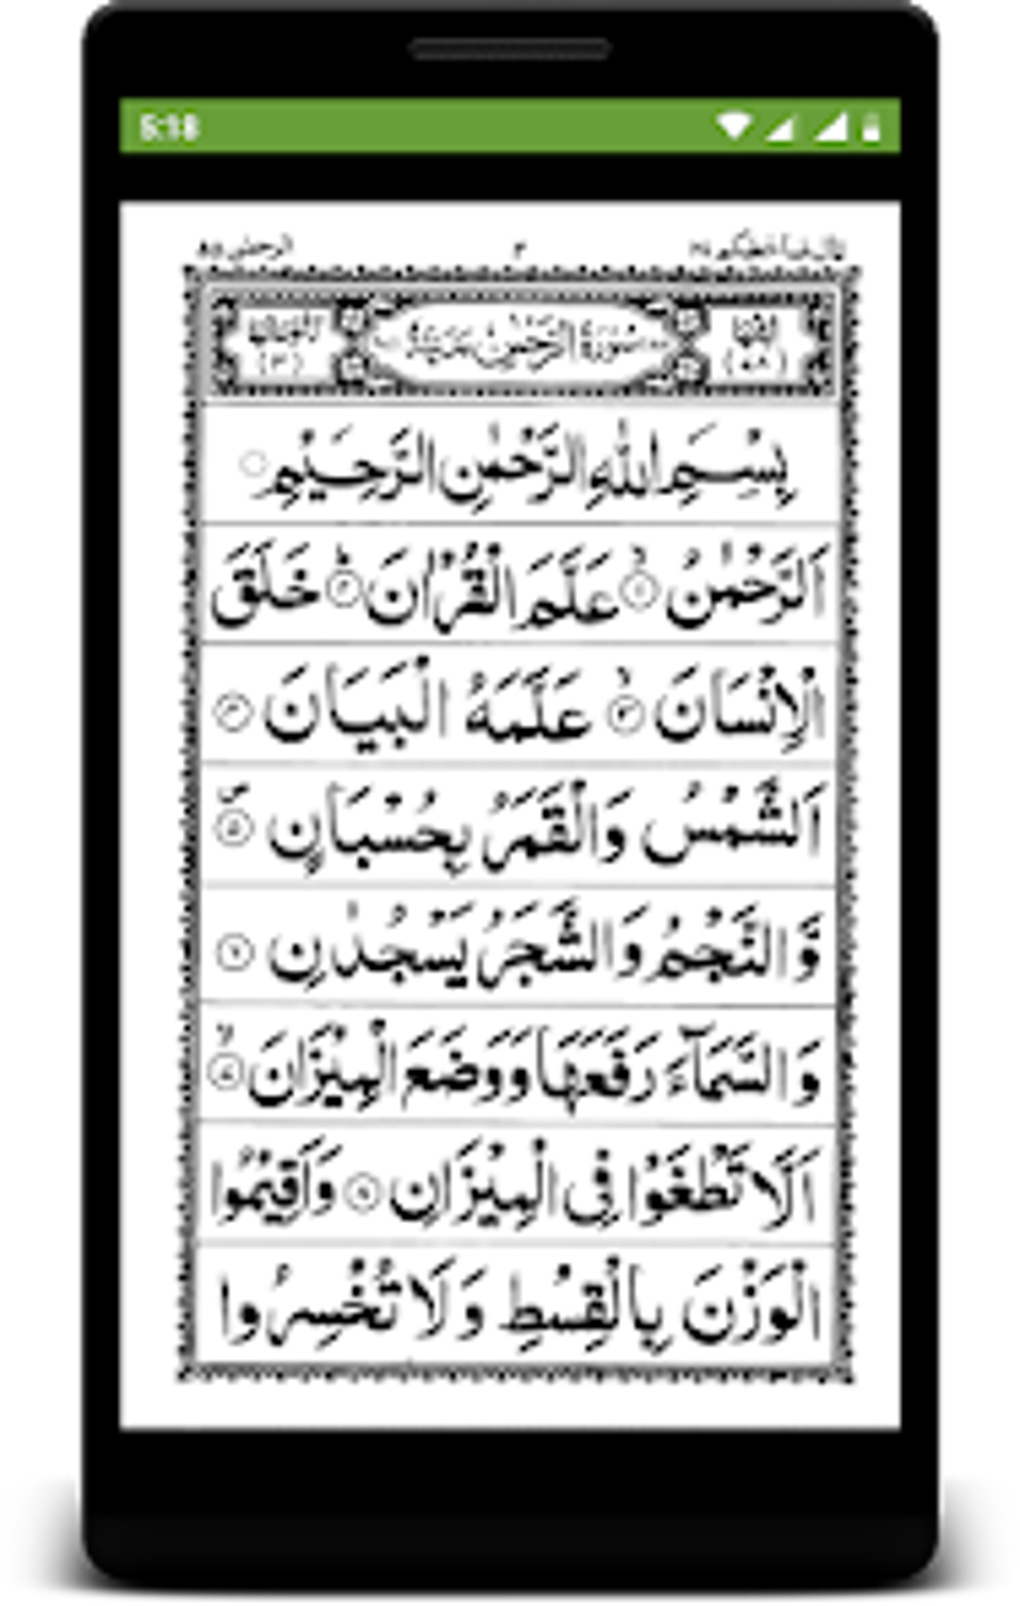 5:18
قال فما خطبکم ۲۷ ۲ الرحمٰن ۵۵
اٰیَاتُهَا (۷۸) سُوْرَةُ الرَّحْمٰنِ مَدَنِیَّةٌ رُکُوْعَاتُهَا (۳)
بِسْمِ اللّٰهِ الرَّحْمٰنِ الرَّحِیْمِ
اَلرَّحْمٰنُ ۙ﴿۱﴾ عَلَّمَ الْقُرْاٰنَ ؕ﴿۲﴾ خَلَقَ
الْاِنْسَانَ ۙ﴿۳﴾ عَلَّمَهُ الْبَیَانَ ﴿۴﴾
اَلشَّمْسُ وَالْقَمَرُ بِحُسْبَانٍ ۪﴿۵﴾
وَّالنَّجْمُ وَالشَّجَرُ یَسْجُدٰنِ ﴿۶﴾
وَالسَّمَآءَ رَفَعَهَا وَوَضَعَ الْمِیْزَانَ ۙ﴿۷﴾
اَلَّا تَطْغَوْا فِی الْمِیْزَانِ ﴿۸﴾ وَاَقِیْمُوا
الْوَزْنَ بِالْقِسْطِ وَلَا تُخْسِرُوا